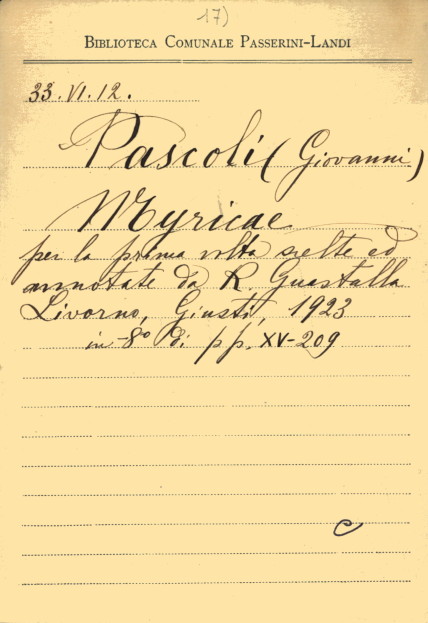 17)
BIBLIOTECA COMUNALE PASSERINI-LANDI
33.VI.12.
Pascoli (Giovanni)
Myricae
per la prima volta scelte ed
annotate da R. Guastalla
Livorno, Giusti, 1923
in-8° di pp. XV-209
C